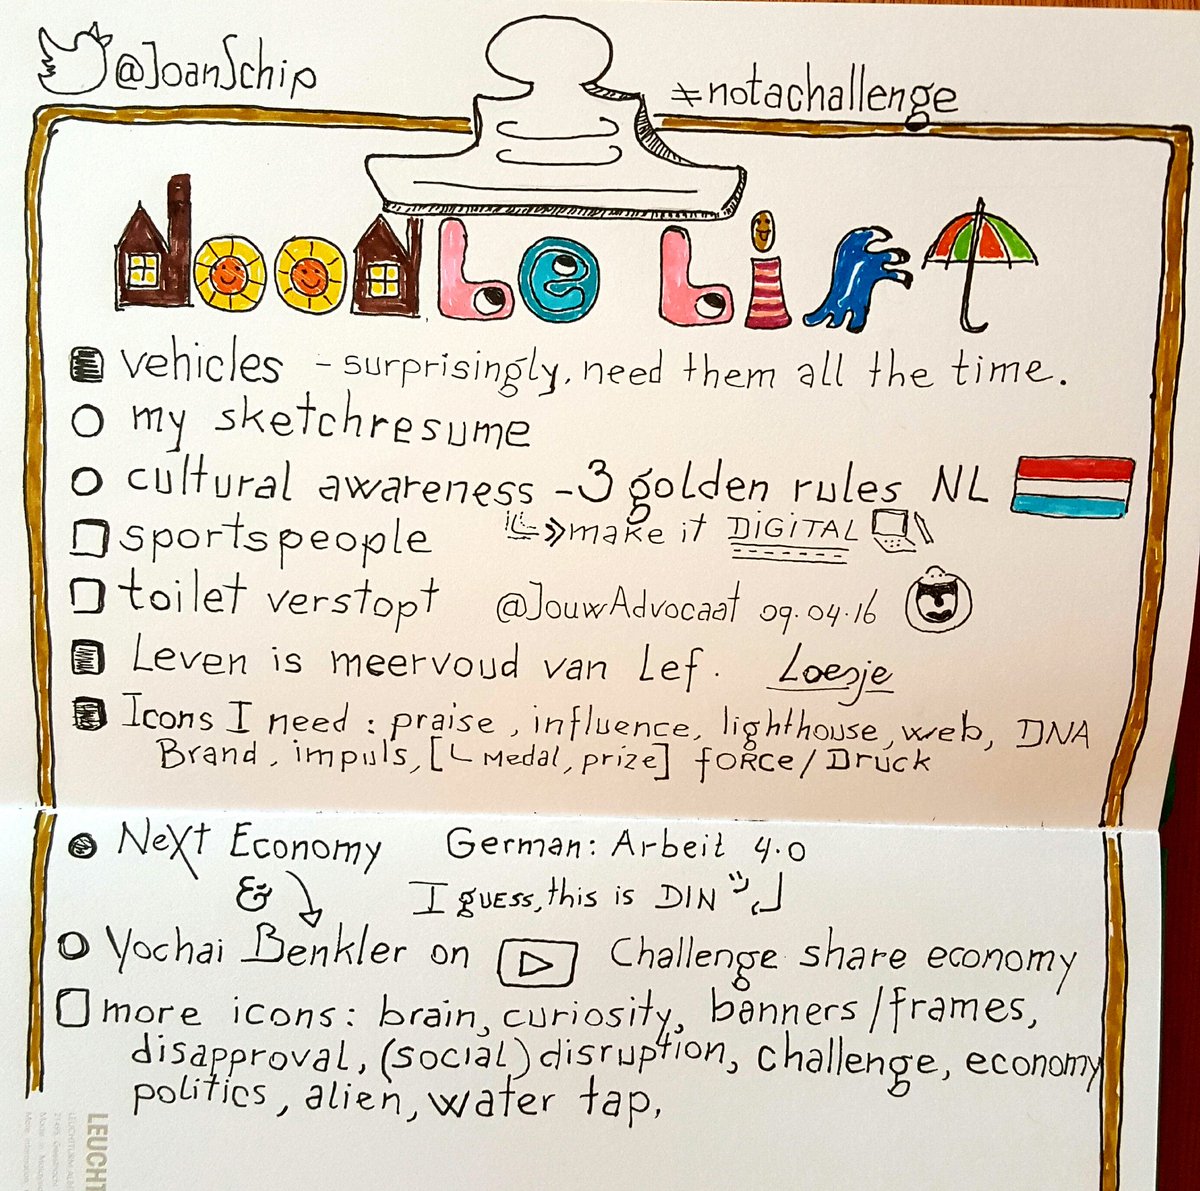 @JoanSchip
≠notachallenge
doodle list
vehicles - surprisingly, need them all the time.
my sketchresume
cultural awareness - 3 golden rules NL
sportspeople » make it DIGITAL
toilet verstopt @JouwAdvocaat 09.04.16
Leven is meervoud van Lef. Loesje
Icons I need: praise, influence, lighthouse, web, DNA
Brand, impuls, [↳ Medal, prize] fORCE/Druck
NeXt Economy German: Arbeit 4.0
& I guess, this is DIN
Yochai Benkler on Challenge share economy
more icons: brain, curiosity, banners/frames,
disapproval, (social) disruption, challenge, economy
politics, alien, water tap,
LEUCHT